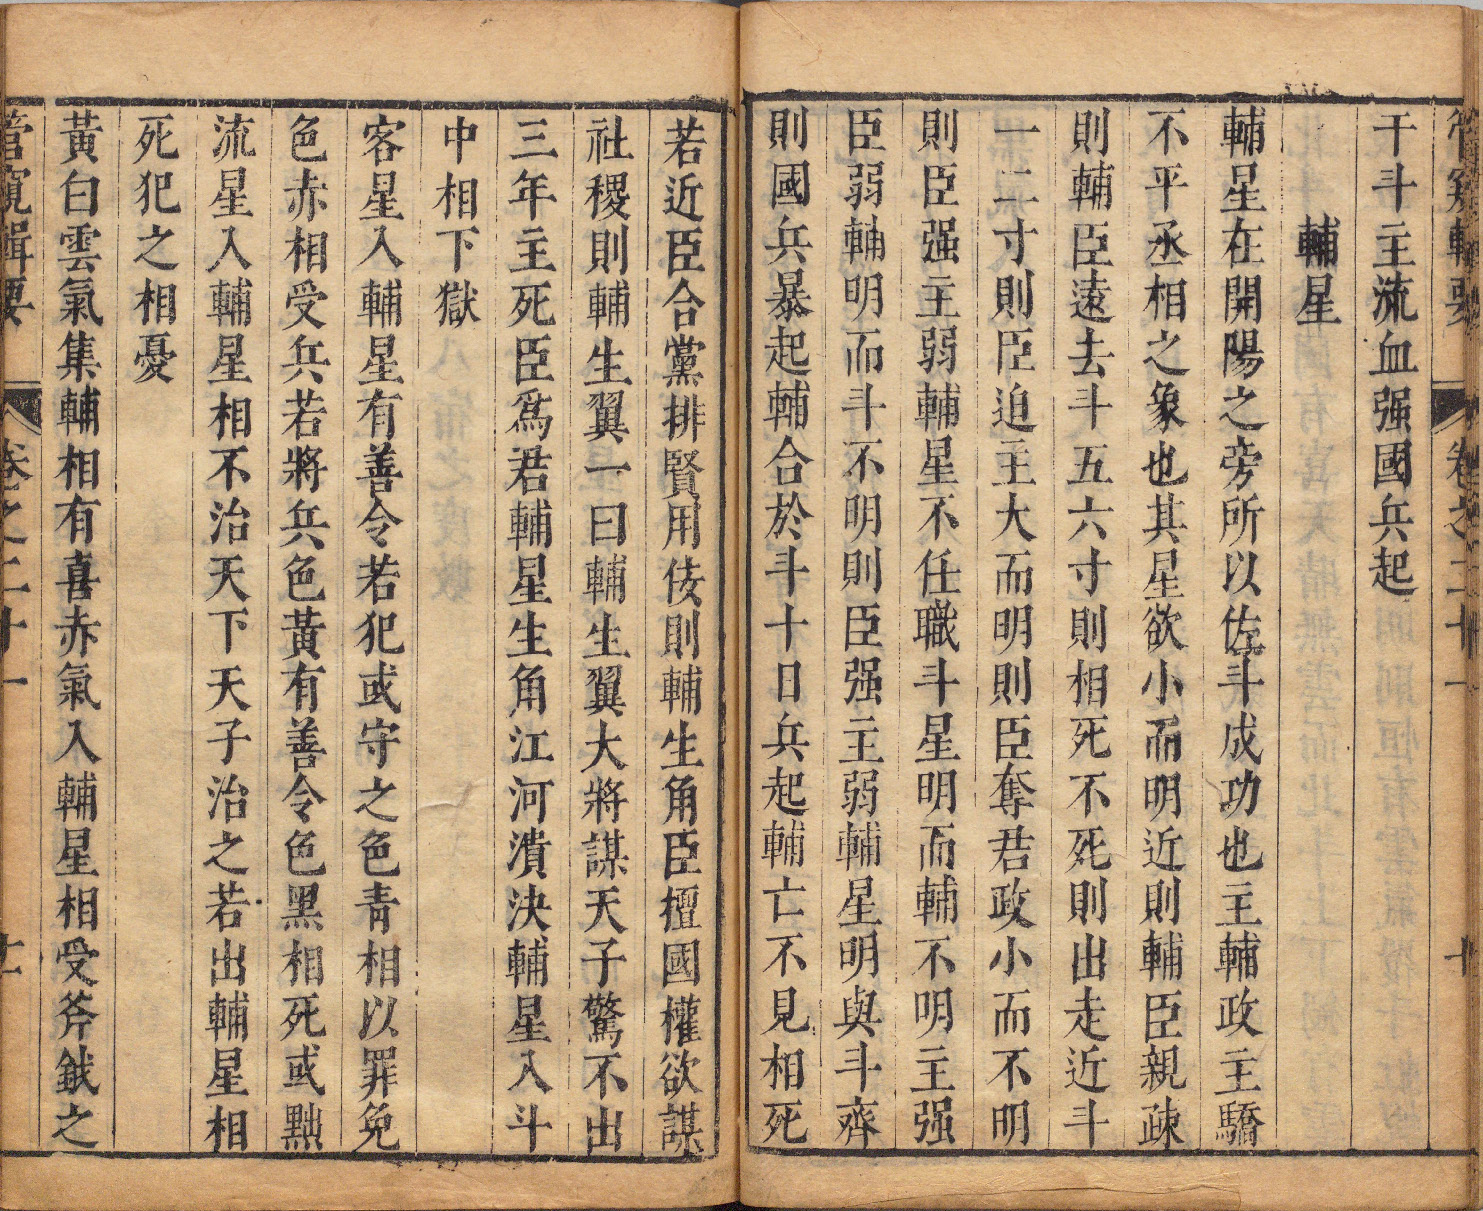 管窺輯要 卷之二十一 十
干斗主流血强國兵起
輔星
輔星在開陽之旁所以佐斗成功也主輔政主驕
不平丞相之象也其星欲小而明近則輔臣親疎
則輔臣遠去斗五六寸則相死不死則出走近斗
一二寸則臣迫主大而明則臣奪君政小而不明
則臣强主弱輔星不任職斗星明而輔不明主强
臣弱輔明而斗不明則臣强主弱輔星明與斗齊
則國兵暴起輔合於斗十日兵起輔亡不見相死
若近臣合黨排賢用佞則輔生角臣擅國權欲謀
社稷則輔生翼一曰輔生翼大將謀天子驚不出
三年主死臣爲君輔星生角江河潰決輔星入斗
中相下獄
客星入輔星有善令若犯或守之色青相以罪免
色赤相受兵若將兵色黃有善令色黑相死或黜
流星入輔星相不治天下天子治之若出輔星相
死犯之相憂
黃白雲氣集輔相有喜赤氣入輔星相受斧鉞之
管窺輯要 卷之二十一 十一